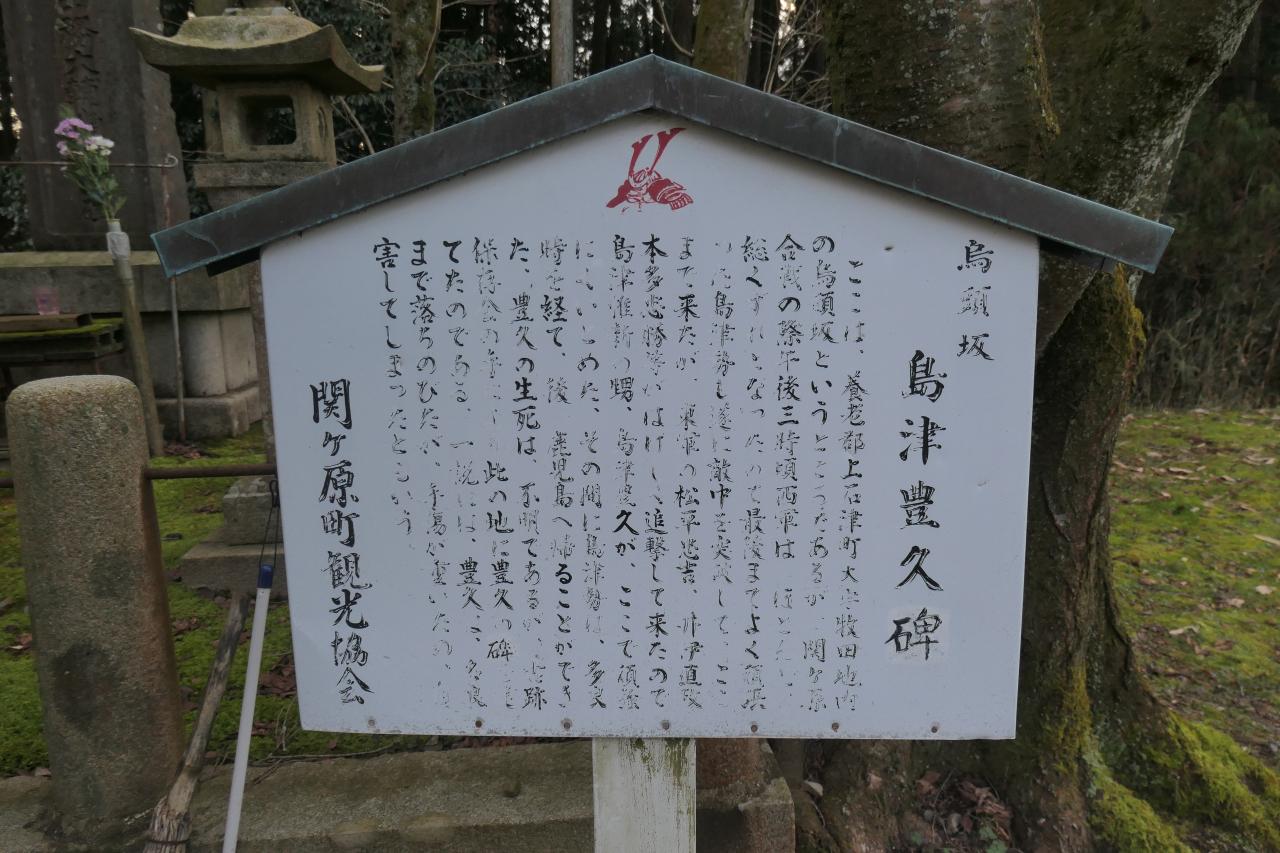 烏頭坂
島津豊久碑
ここは、養老郡上石津町大字牧田地内
の烏頭坂というところであるが、関ケ原
合戦の際午後三時頃西軍は ほとんど
総くずれとなったので最後までよく頑張
った島津勢も遂に敵中を突破して、ここ
まで来たが、東軍の松平忠吉、井伊直政
本多忠勝等がはげしく追撃して来たので
島津維新の甥、島津豊久が、ここで頑強
にくいとめた、その間に島津勢は、多良
時を経て、後 鹿児島へ帰ることができ
た、豊久の生死は 不明であるが、古跡
保存会の手により 此の地に豊久の碑を
てたのである、一説には、豊久は、多良
まで落ちのびたが、手傷が重いため、自
害してしまったともいう
関ケ原町観光協会